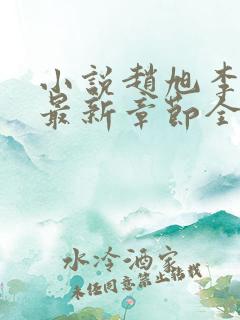 小说趙旭李
最新章節全
水冷酒家
未经同意禁止转载